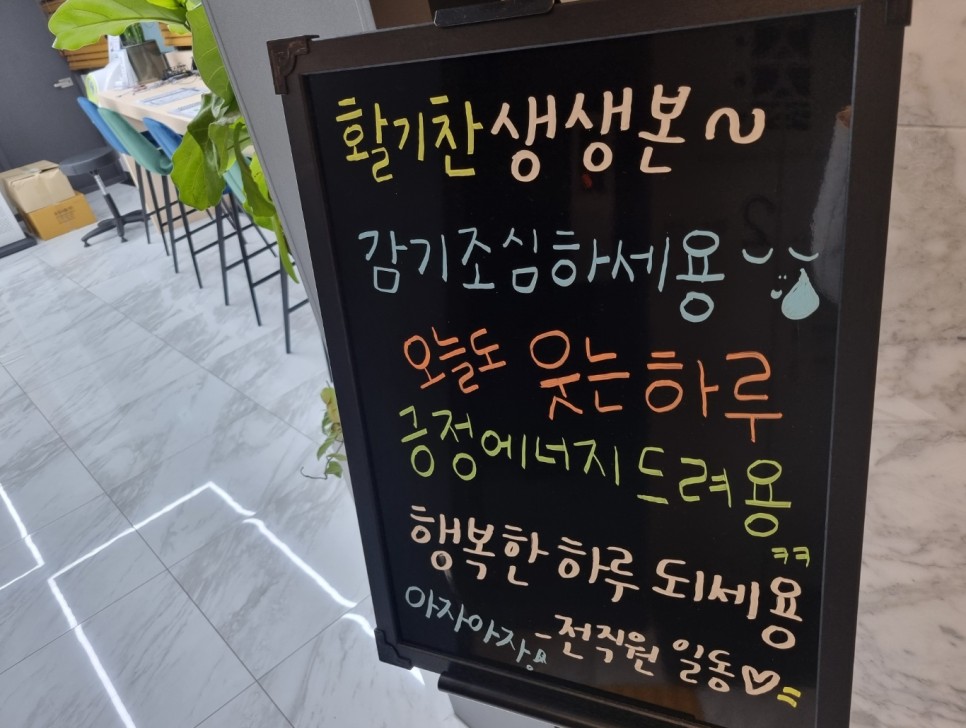 활기찬 생생본~
감기조심하세용
오늘도 웃는하루
긍정에너지 드려용
ㅋㅋ
행복한 하루 되세용
아자아자!
-전직원 일동♡